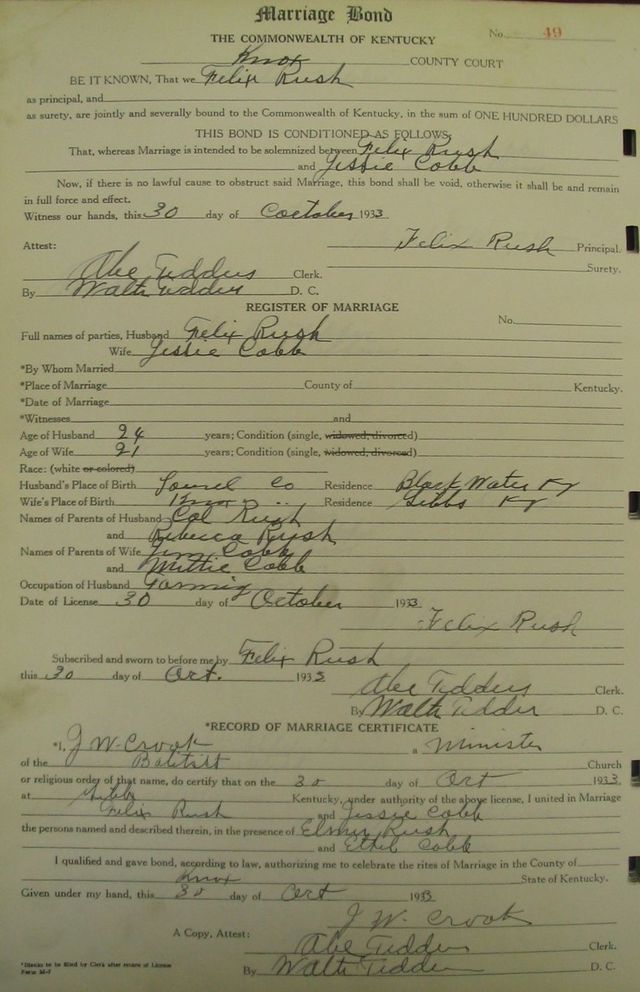 Marriage Bond
No. 49
THE COMMONWEALTH OF KENTUCKY
Knox COUNTY COURT
BE IT KNOWN, That we Felix Rush
as principal, and
as surety, are jointly and severally bound to the Commonwealth of Kentucky, in the sum of ONE HUNDRED DOLLARS
THIS BOND IS CONDITIONED AS FOLLOWS:
That, whereas Marriage is intended to be solemnized between Felix Rush
and Jessie Cobb
Now, if there is no lawful cause to obstruct said Marriage, this bond shall be void, otherwise it shall be and remain
in full force and effect.
Witness our hands, this 30 day of October 1933.
Attest: Felix Rush Principal.
Surety.
Abe Tedders Clerk.
By Walter Tedders D. C.
REGISTER OF MARRIAGE
No.
Full names of parties, Husband Felix Rush
Wife Jessie Cobb
*By Whom Married
*Place of Marriage County of Kentucky.
*Date of Marriage
*Witnesses and
Age of Husband 24 years; Condition (single, widowed, divorced)
Age of Wife 21 years; Condition (single, widowed, divorced)
Race: (white or colored)
Husband's Place of Birth Laurel Co Residence Black Water Ky
Wife's Place of Birth Knox " " Residence Gibbs Ky
Names of Parents of Husband Cal Rush
and Rebecca Rush
Names of Parents of Wife Jim Cobb
and Mittie Cobb
Occupation of Husband Farming
Date of License 30 day of October 1933
Felix Rush
Subscribed and sworn to before me by Felix Rush
this 30 day of Oct. 1933
Abe Tedders Clerk.
By Walter Tedder D. C.
*RECORD OF MARRIAGE CERTIFICATE
*I, J W Crook a Minister
of the Babtist Church
or religious order of that name, do certify that on the 30 day of Oct 1933.
at Gibbs Kentucky, under authority of the above license, I united in Marriage
Felix Rush and Jessie Cobb
the persons named and described therein, in the presence of Elmer Rush
and Ethel Cobb
I qualified and gave bond, according to law, authorizing me to celebrate the rites of Marriage in the County of
Knox State of Kentucky.
Given under my hand, this 30 day of Oct 1933
J W. Crook
A Copy, Attest: Abe Tedders Clerk.
By Walter Tedders D. C.
*Blanks to be filled by Clerk after return of License
Form M-7